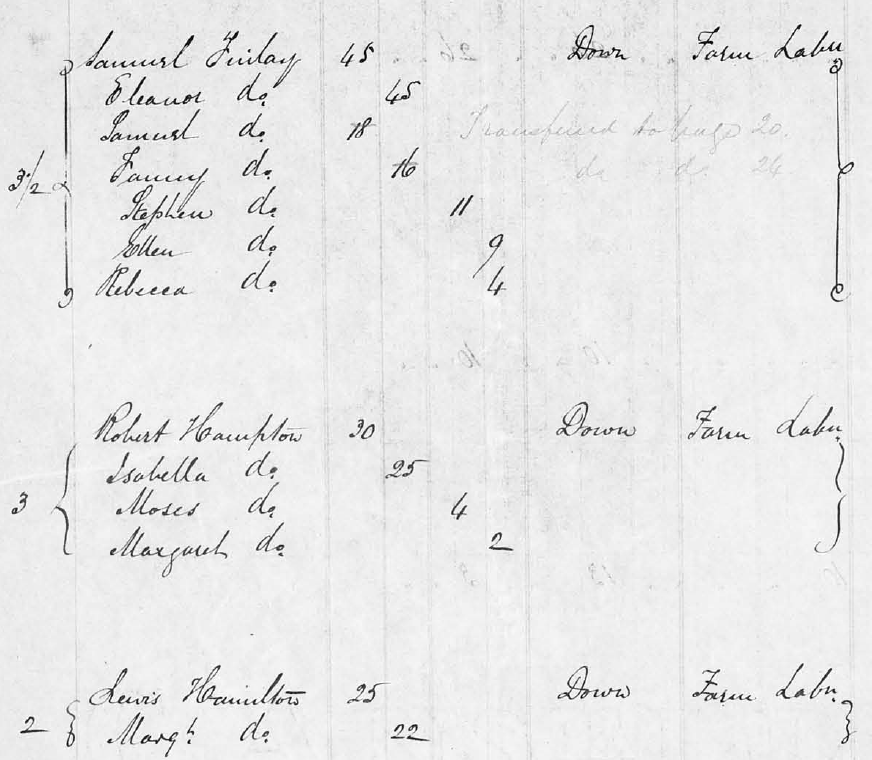 Samuel Finlay 45 Down Farm Labr
Eleanor do 45
Samuel do 18 Transferred to page 20.
3 1/2 Fanny do 16 do do 24
Stephen do 11
Ellen do 9
Rebecca do 4
Robert Hampton 30 Down Farm Labr
Isabella do 25
3 Moses do 4
Margaret do 2
Lewis Hamilton 25 Down Farm Labr
2 Margt do 22